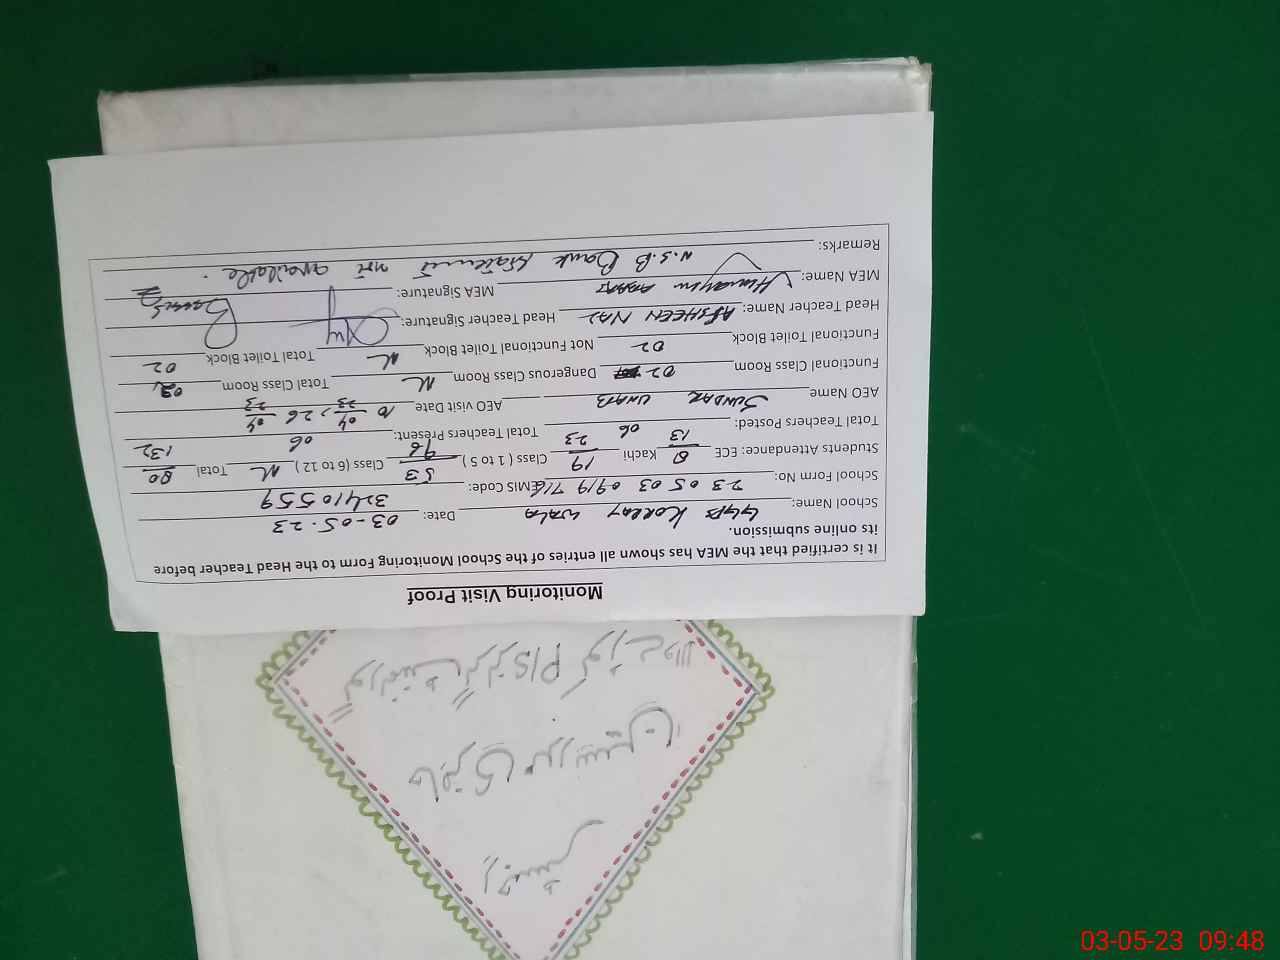 Monitoring Visit Proof
It is certified that the MEA has shown all entries of the School Monitoring Form to the Head Teacher before
its online submission.
School Name: GGPS KORRAY WALA Date: 03-05-23
School Form No: 23 05 03 0919 716 EMIS Code: 32410559
Students Attendance: ECE 8/13 Kachi 19/23 Class ( 1 to 5 ) 53/96 Class (6 to 12 ) Nil Total 80/132
Total Teachers Posted: 06 Total Teachers Present: 06
AEO Name SUNDAL AEO visit Date 10 04/23, 26 04/23
Functional Class Room 02 Dangerous Class Room Nil Total Class Room 02
Functional Toilet Block 02 Not Functional Toilet Block Nil Total Toilet Block 02
Head Teacher Name: AFSHEEN NAZ Head Teacher Signature:
MEA Name: Humayun MEA Signature:
Remarks: N.S.B Bank statement not available.
گورنمنٹ گرلز P/S کوڑے والا
حاضری مدرسین
رجسٹر
03-05-23 09:48